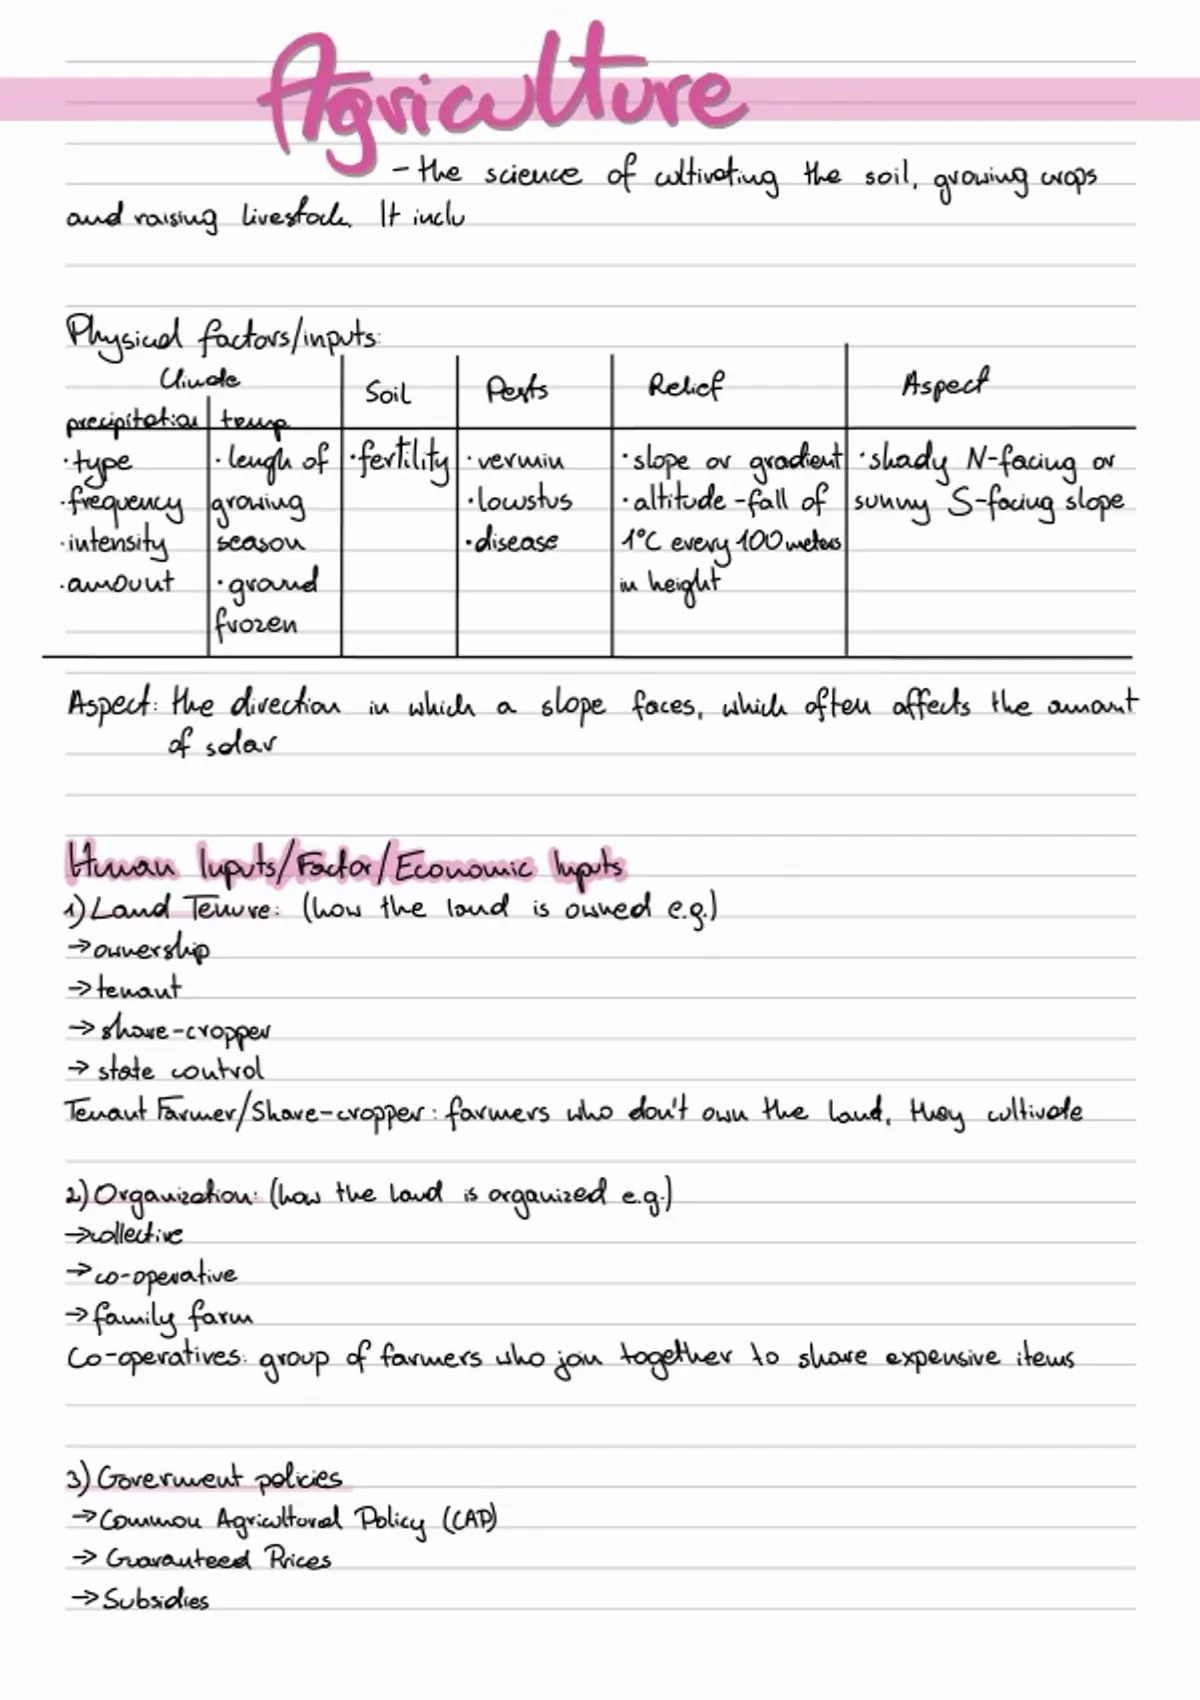 Agriculture
- the science of cultivating the soil, growing crops
and raising livestock. It inclu
Physical factors/inputs:
Climate Soil Pests Relief Aspect
precipitation temp
·type ·lengh of ·fertility ·vermin ·slope or gradient ·shady N-facing or
·frequency growing ·locustus ·altitude - fall of sunny S-facing slope
·intensity season ·disease 1°C every 100 meters
·amount ·ground in height
frozen
Aspect: the direction in which a slope faces, which often affects the amount
of solar
Human Inputs/Factor/Economic Inputs
1) Land Tenure: (how the land is owned e.g.)
→ownership
→tenant
→share-cropper
→state control
Tenant Farmer/Share-cropper: farmers who don't own the land, they cultivate
2) Organization: (how the land is organized e.g.)
→collective
→co-operative
→family farm
Co-operatives: group of farmers who join together to share expensive items
3) Government policies
→Common Agricultural Policy (CAP)
→Guaranteed Prices
→Subsidies